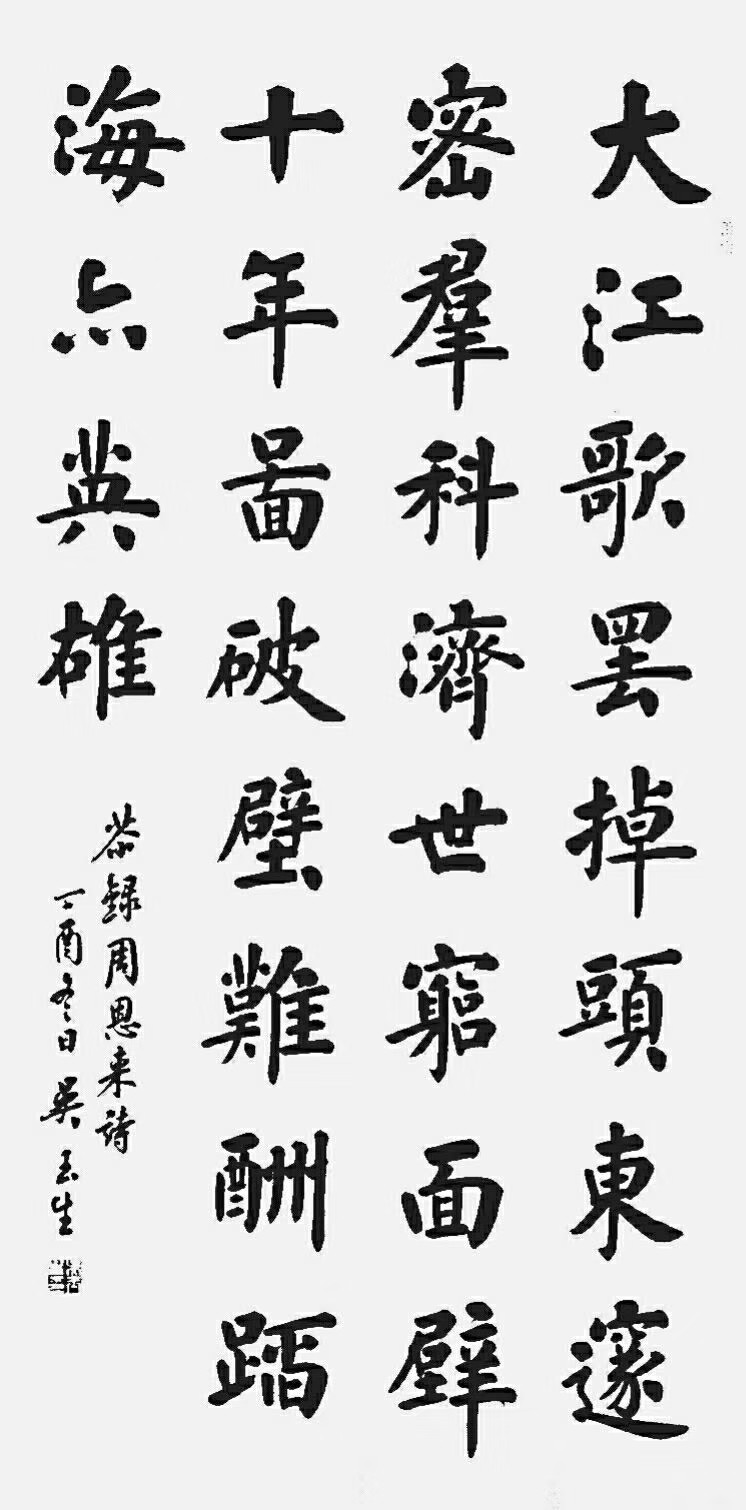 大江歌罷掉頭東邃
密羣科濟世窮面壁
十年圖破壁難酬蹈
海亦英雄
恭録周恩来詩
丁酉冬日吳玉生